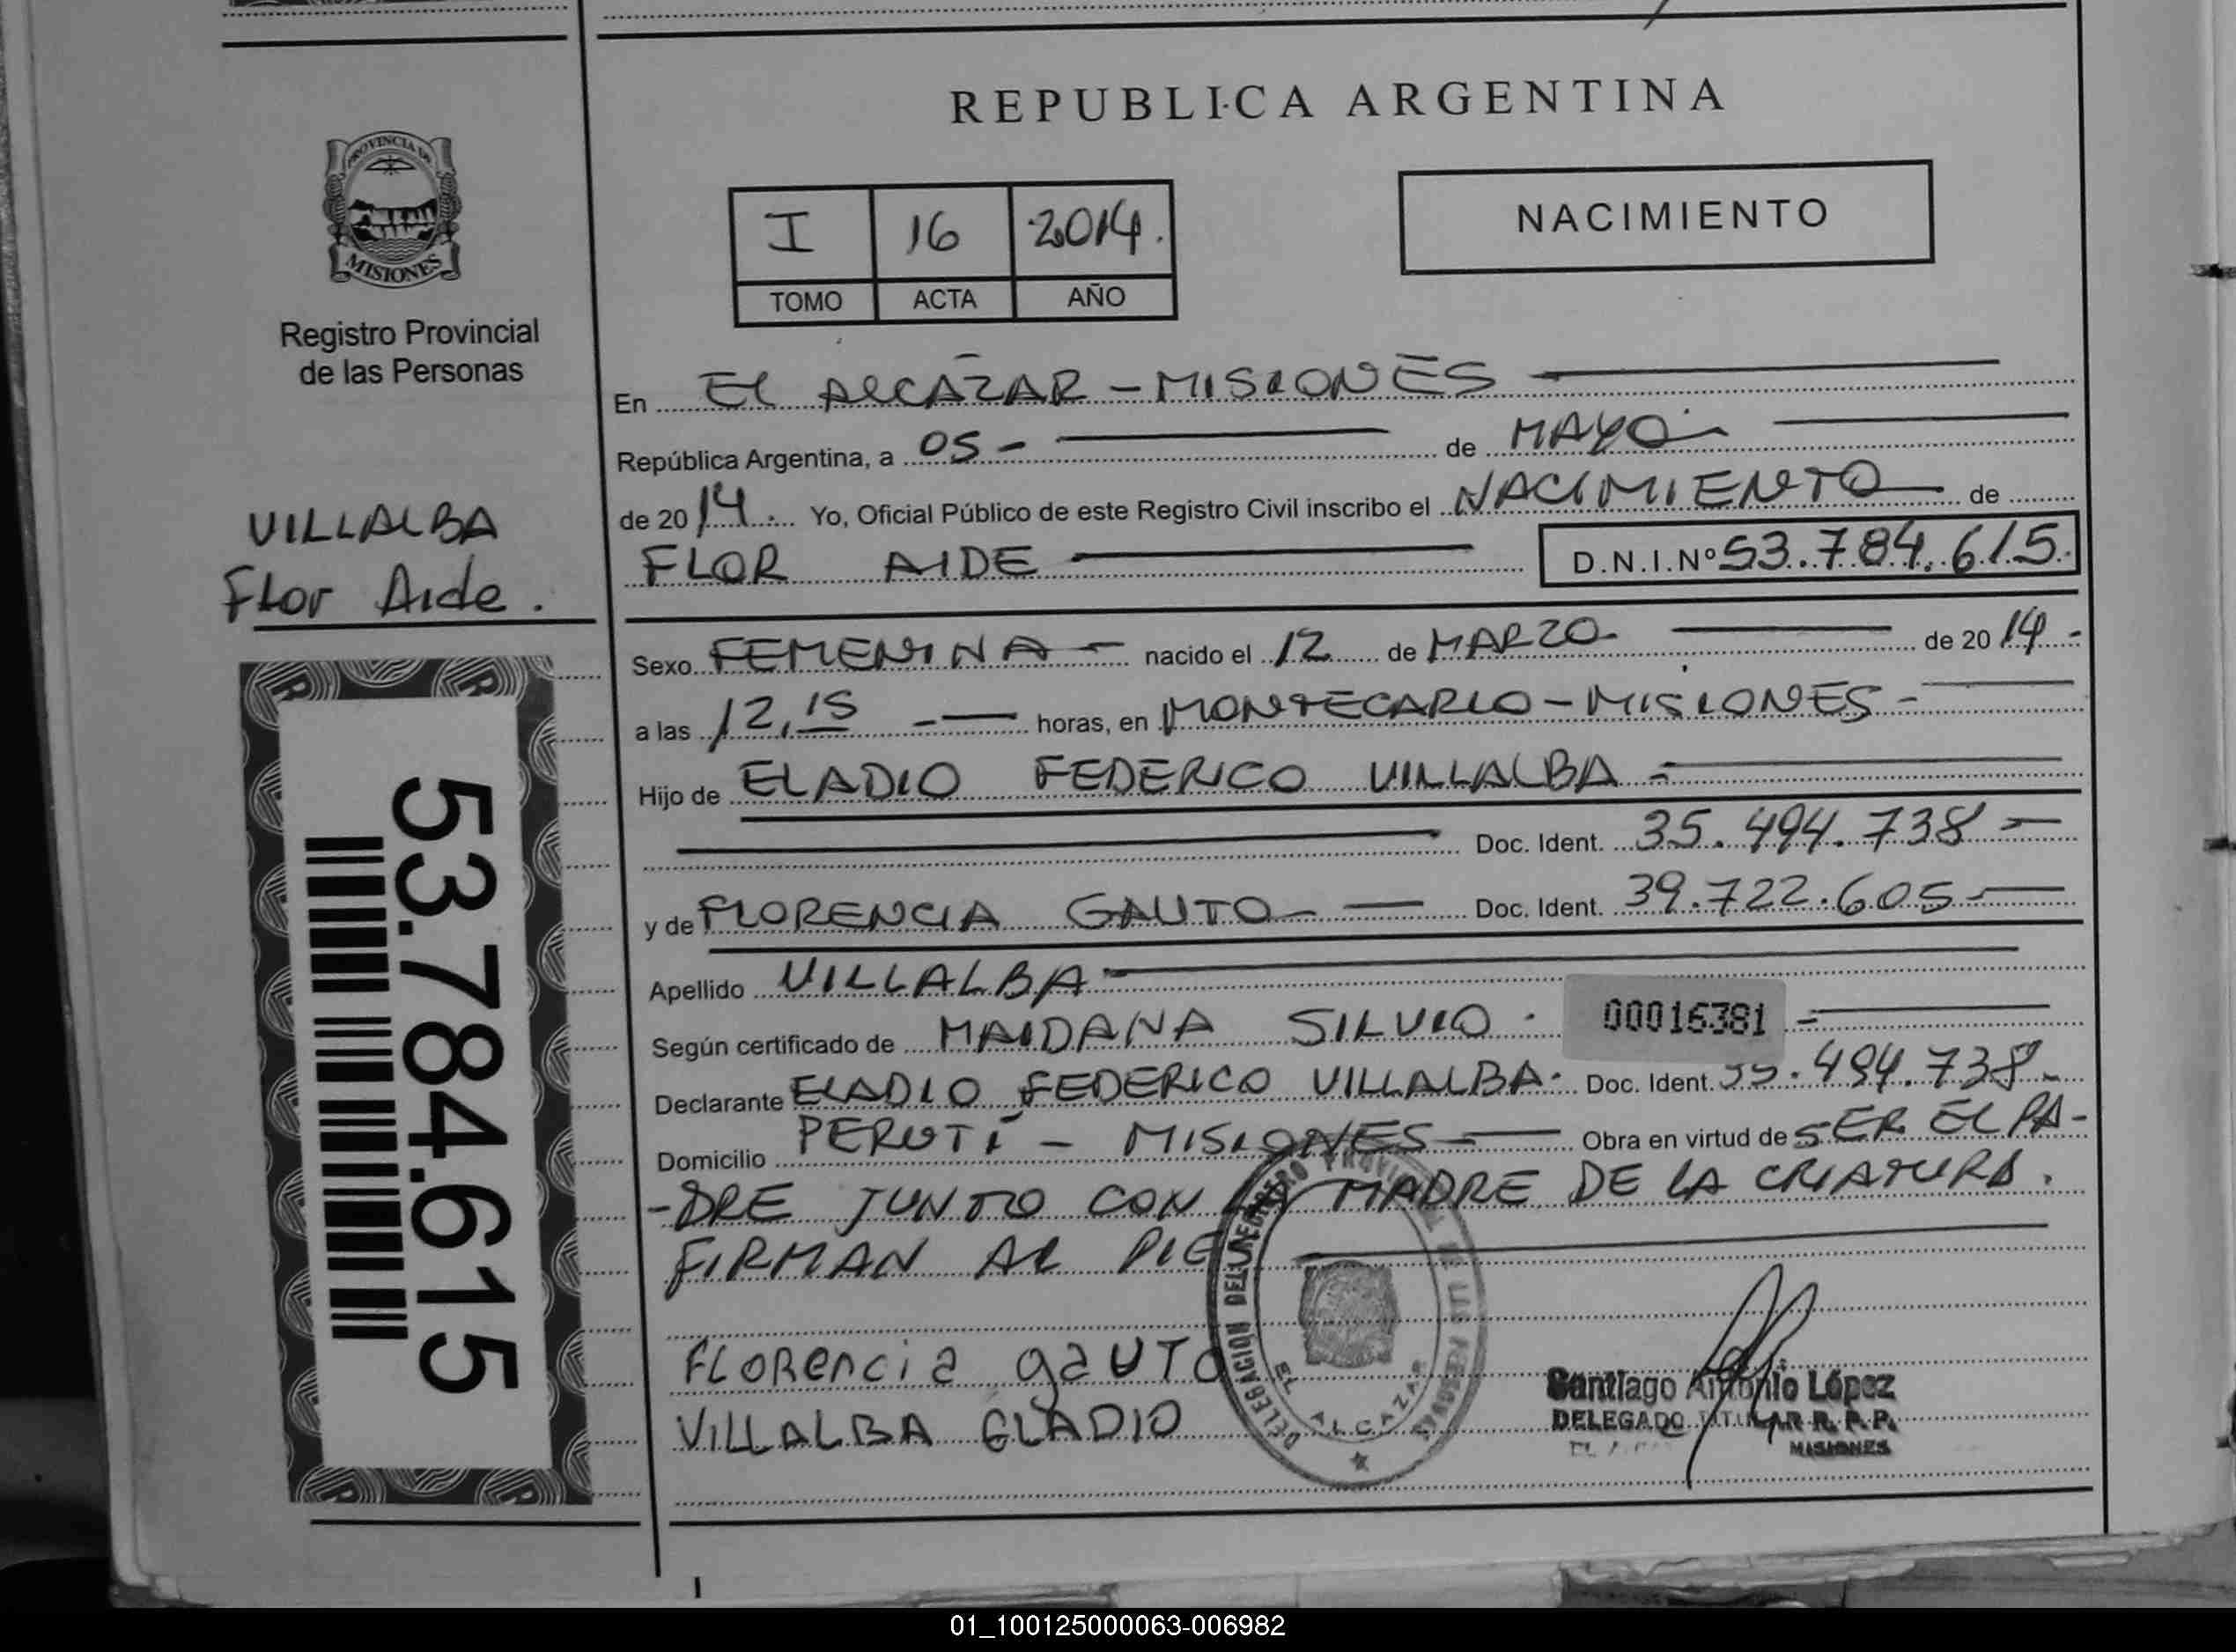 PROVINCIA DE
MISIONES
Registro Provincial
de las Personas
VILLALBA
Flor Aide.
53.784.615
REPUBLICA ARGENTINA
I 16 2014.
TOMO ACTA AÑO
NACIMIENTO
En EL ALCÁZAR - MISIONES
República Argentina, a 05 - de MAYO
de 2014. Yo, Oficial Público de este Registro Civil inscribo el NACIMIENTO de
FLOR AIDE D.N.I.Nº 53.784.615.
Sexo FEMENINA - nacido el 12 de MARZO de 2014-
a las 12,15 horas, en MONTECARLO - MISIONES -
Hijo de ELADIO FEDERICO VILLALBA -
Doc. Ident. 35.494.738 -
y de FLORENCIA GAUTO - Doc. Ident. 39.722.605 -
Apellido VILLALBA
Según certificado de MAIDANA SILVIO. 00016381 -
Declarante ELADIO FEDERICO VILLALBA. Doc. Ident. 35.494.738 -
Domicilio PERUTÍ - MISIONES Obra en virtud de SER EL PA-
-DRE JUNTO CON LA MADRE DE LA CRIATURA.
FIRMAN AL PIE
FLORencia gauto
VILLALBA ELADIO
DELEGACION DEL REGISTRO PROVINCIAL DE LAS PERSONAS
EL ALCAZAR
Santiago Antonio López
DELEGADO TITULAR R. P. P.
MISIONES
01_100125000063-006982